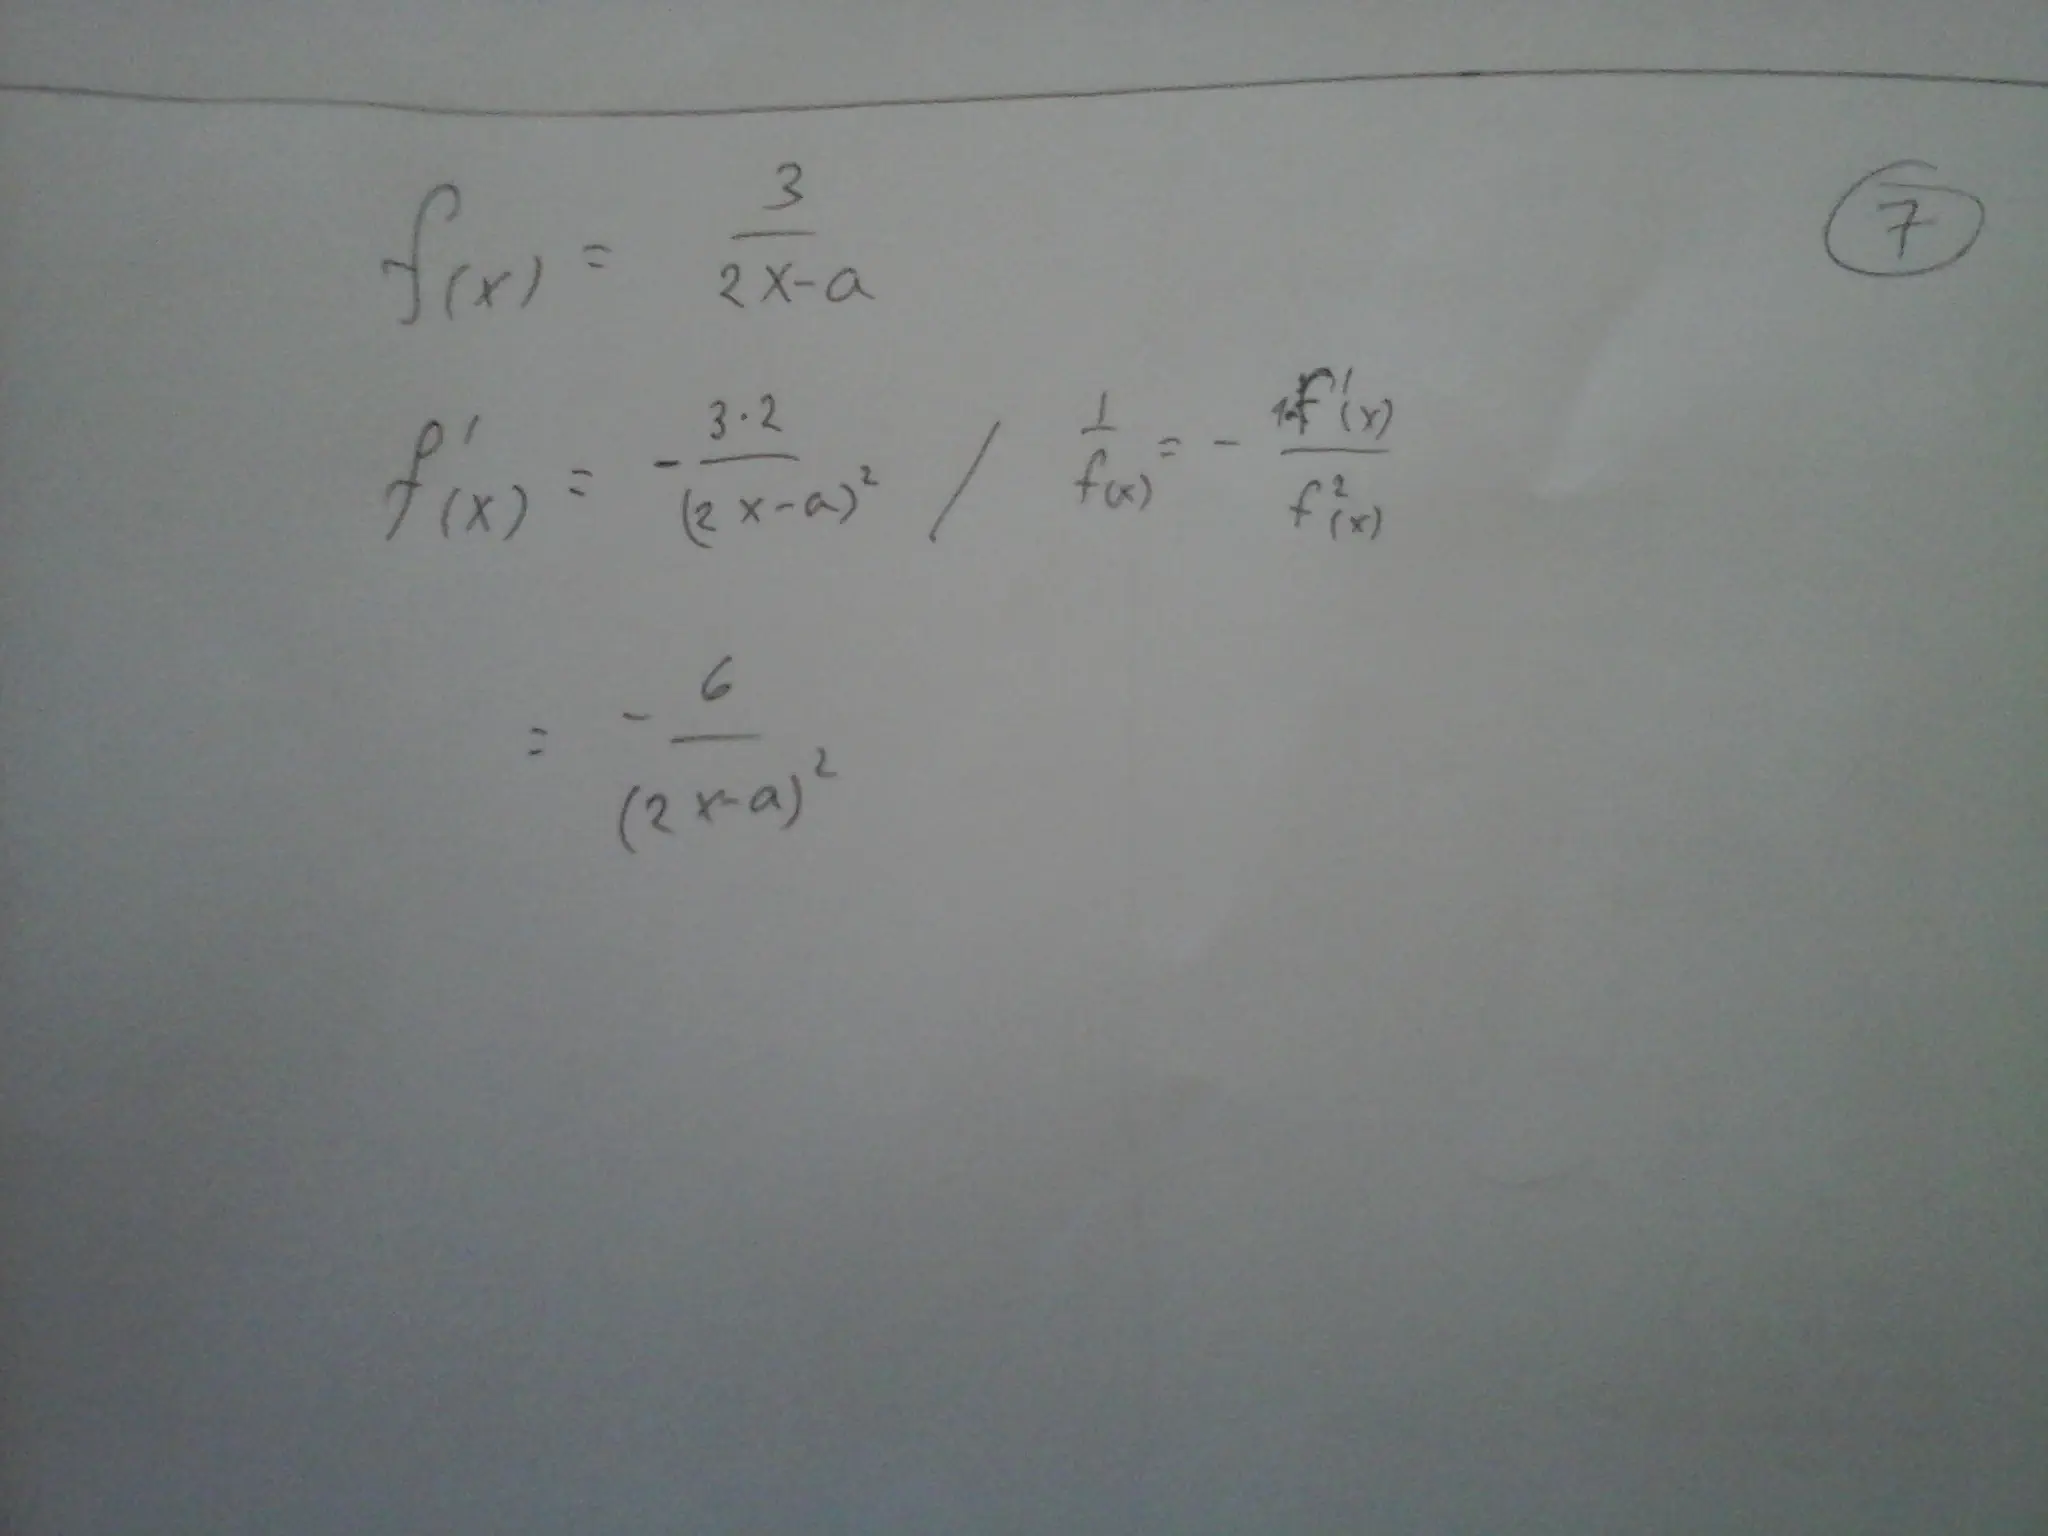 f(x) = 3/(2x-a)
7
f'(x) = - 3·2/(2x-a)² / 1/f(x) = - f'(x)/f²(x)
= - 6/(2x-a)²